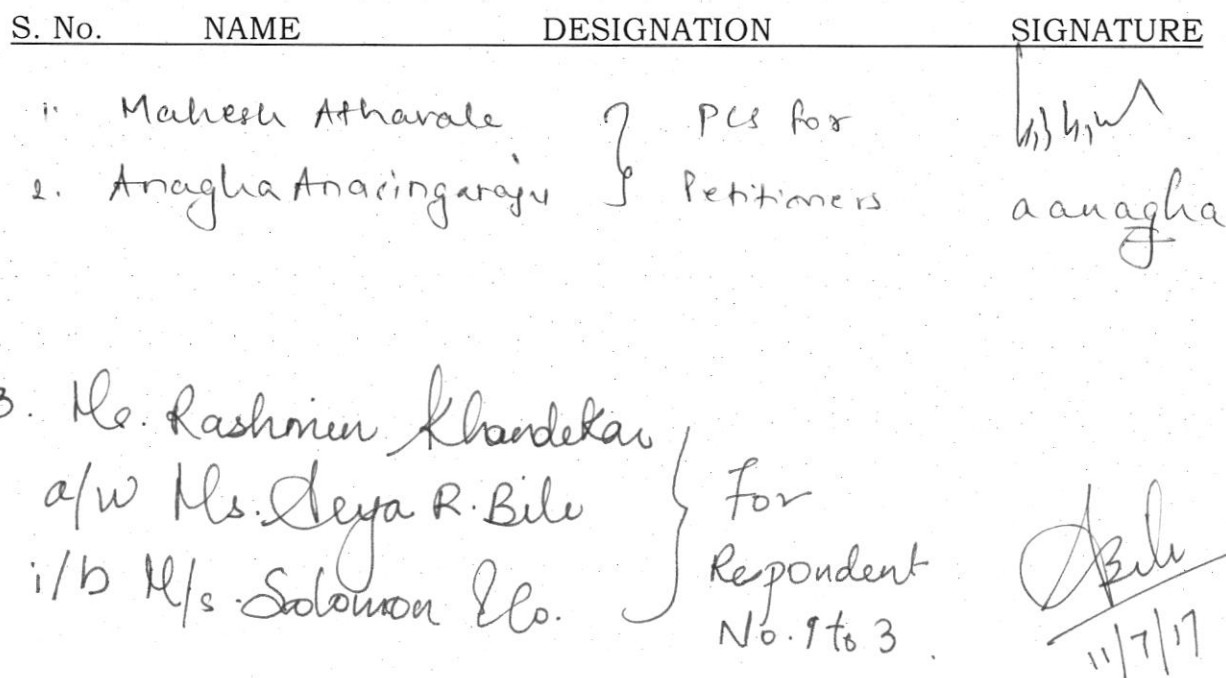 S. No. NAME DESIGNATION SIGNATURE
1. Mahesh Athavale } PCS for
2. Anagha Anasingaraju } Petitioners aanagha
3. Mr. Rashmin Khandekar
a/w Ms. R. Bile For
i/b M/s. Solomon & Co. Respondent
No. 1 to 3.
Bile
11/7/17